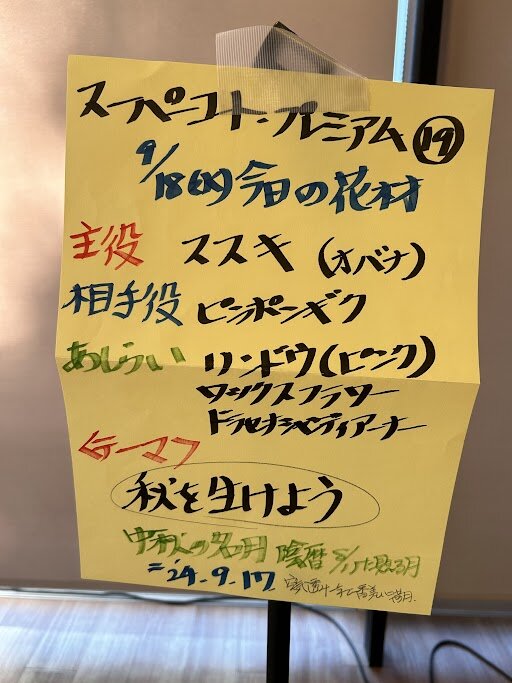 スーパーコート・プレミアム ⑲
9/18(水)今日の花材
主役 ススキ (オバナ)
相手役 ピンポンギク
あしらい リンドウ(ピンク)
ワックスフラワー
ドラセナ
テーマ
秋を生けよう
中秋の名月 陰暦 8/15に見る月
='24.9.17 一年で一番美しい満月.